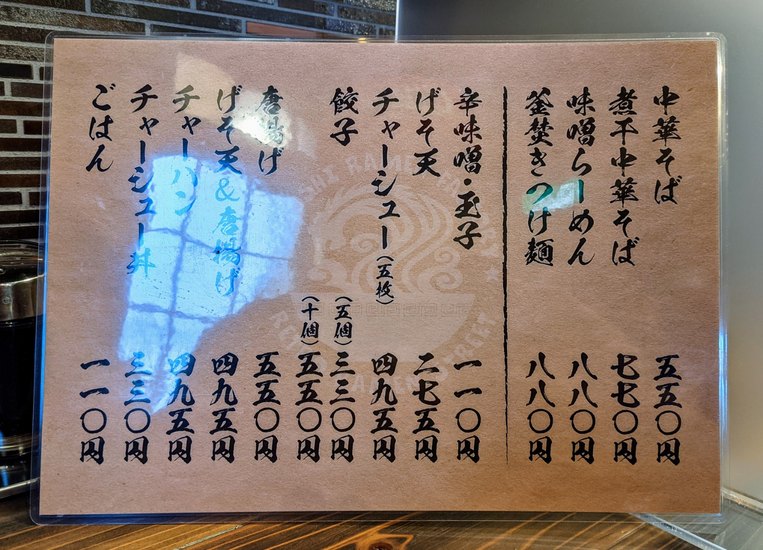 中華そば 五五〇円
煮干中華そば 七七〇円
味噌らーめん 八八〇円
釜焚きつけ麺 八八〇円
辛味噌・玉子 一一〇円
げそ天 二七五円
チャーシュー(五枚) 四九五円
餃子 (五個) 三三〇円
(十個) 五五〇円
唐揚げ 五五〇円
げそ天&唐揚げ 四九五円
チャーハン 四九五円
チャーシュー丼 三三〇円
ごはん 一一〇円